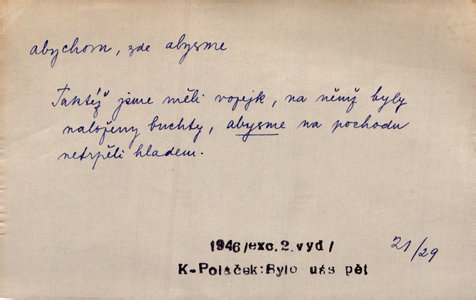 abychom, zde abysme
Taktéž jsme měli vozejk, na němž byly
naloženy buchty, abysme na pochodu
netrpěli hladem.
1946/exc.2.vyd/
21/29
K-Poláček:Bylo nás pět